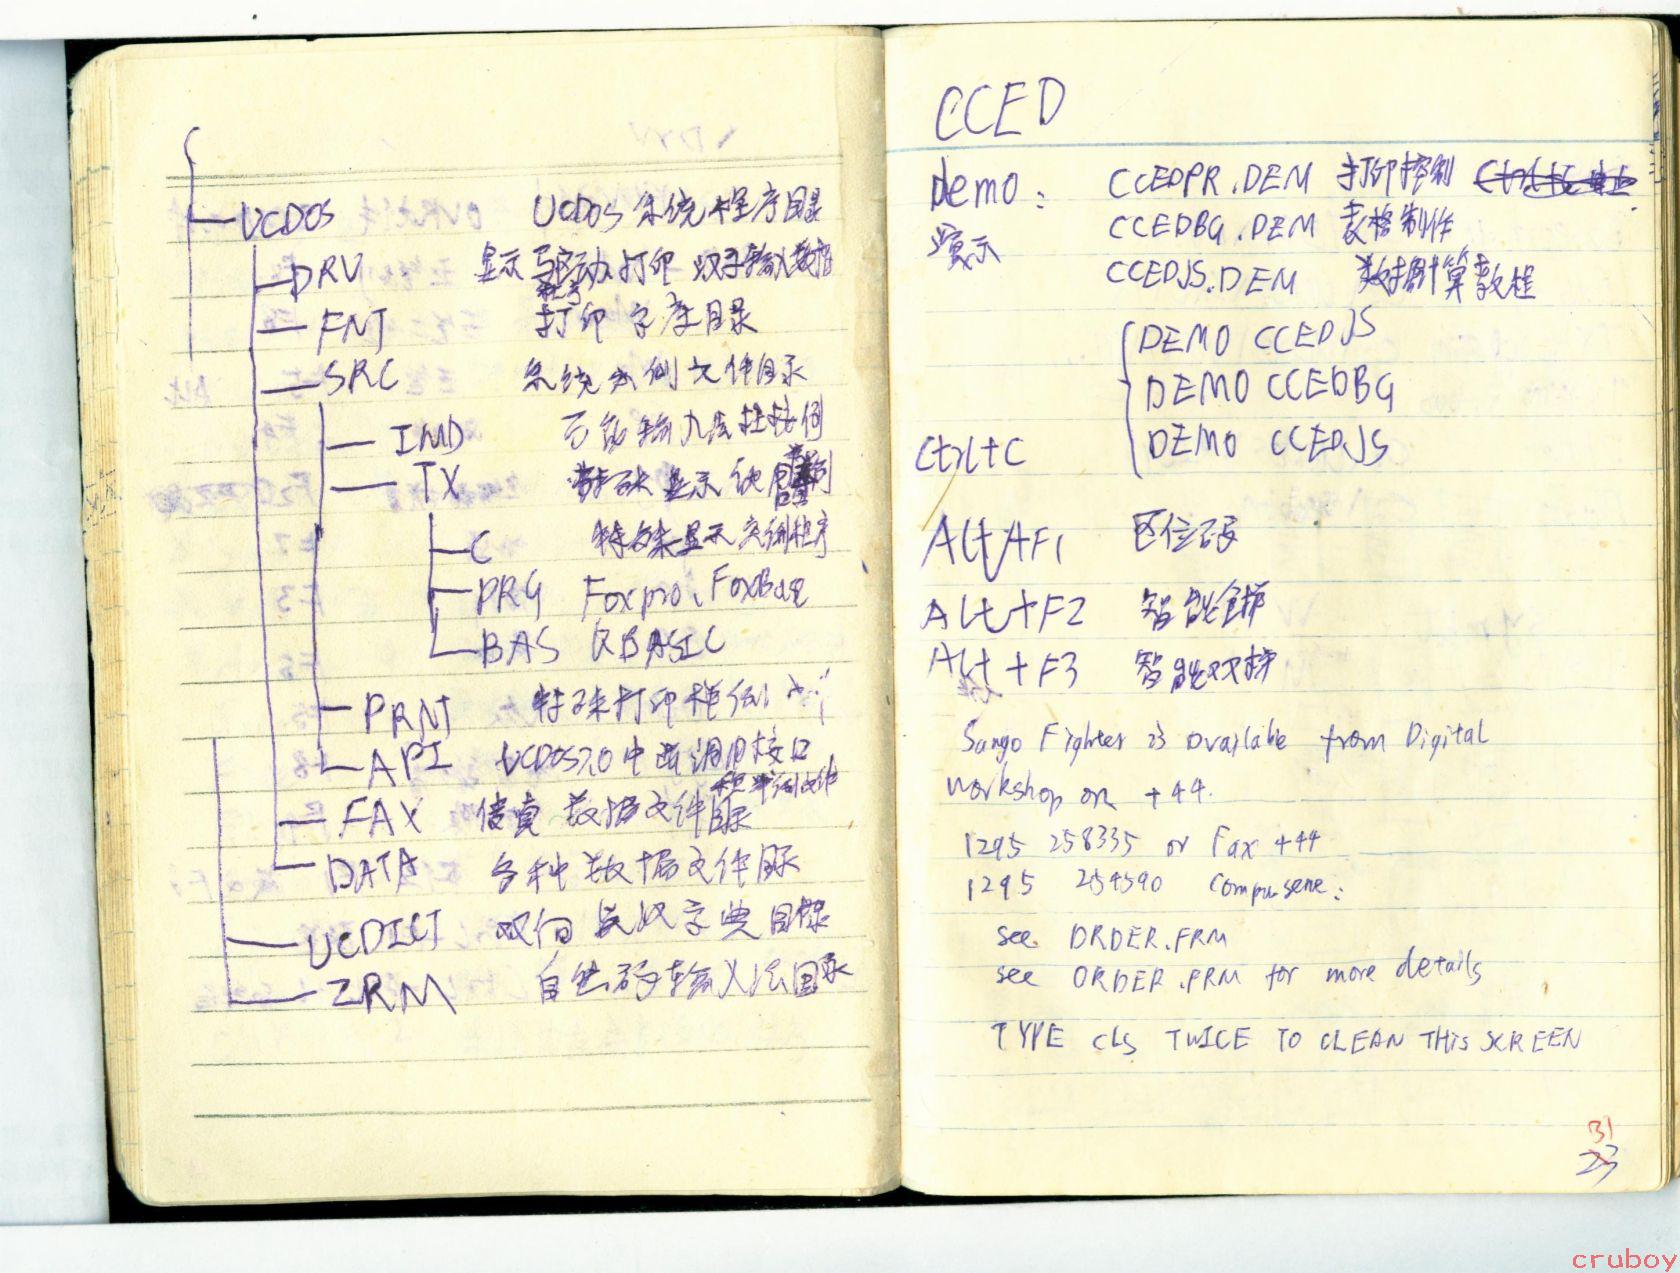 C
UCDOS UCDOS 系统程序目录
DRV 显示驱动打印 汉字输入数据
程序
FNT 打印字库目录
SRC 系统实例文件目录
IMD 智能输入法挂接例
TX 特殊显示使用
C 特殊显示实例程序
PRG Foxpro、FoxBase
BAS QBASIC
PRNT 特殊打印样例
API UCDOS7.0中断调用接口
程序例文件
FAX 传真数据文件目录
DATA 各种数据文件目录
UCDICT 双向英汉字典目录
ZRM 自然码输入法目录
CCED
demo: CCEDPR.DEM 打印控制
演示 CCEDBG.DEM 表格制作
CCEDJS.DEM 数据计算教程
DEMO CCEDJS
DEMO CCEDBG
Ctrl+C DEMO CCEDJS
Alt+F1 区位码
Alt+F2 智能全拼
Alt+F3 智能双拼
Sango Fighter is available from Digital
workshop on +44.
1295 258335 or Fax +44
1295 254590 Compuserve:
see ORDER.FRM
see ORDER.FRM for more details
TYPE cls TWICE TO CLEAN THIS SCREEN
31
23
cruboy